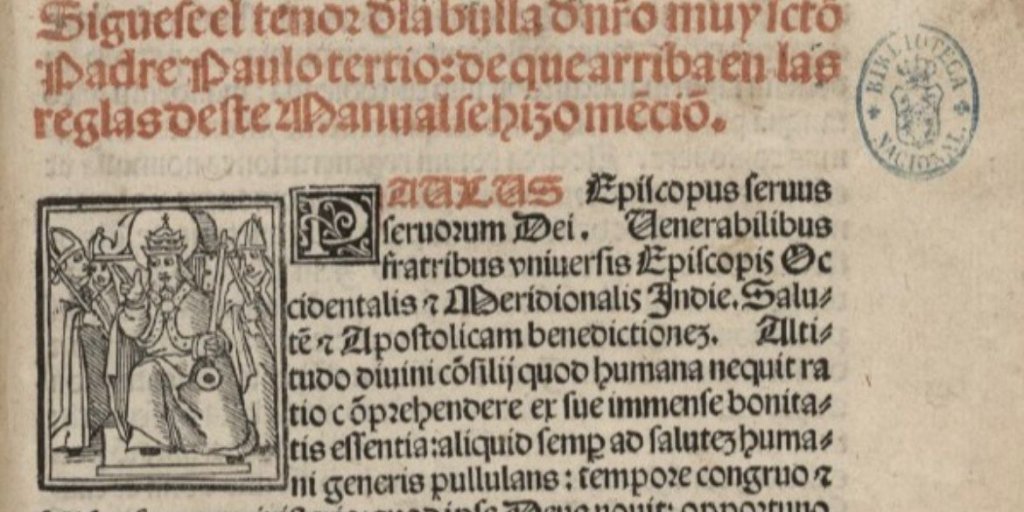 Siguese el tenor dla bulla dnr̃o muy sctõ
Padre Paulo tertio: de que arriba en las
reglas deste Manual se hizo mẽciõ.
BIBLIOTECA NACIONAL
PAULUS Episcopus seruus
seruorum Dei. Uenerabilibus
fratribus vniuersis Episcopis Oc
cidentalis ⁊ Meridionalis Indie. Salu⸗
tẽ ⁊ Apostolicam benedictionez. Alti⸗
tudo diuini cõsilij quod humana nequit ra
tio cõprehendere ex sue immense bonita⸗
tis essentia: aliquid semꝑ ad salutez huma⸗
ni generis pullulans: tempore congruo ⁊
quod ipse Deus nouit: opportuno